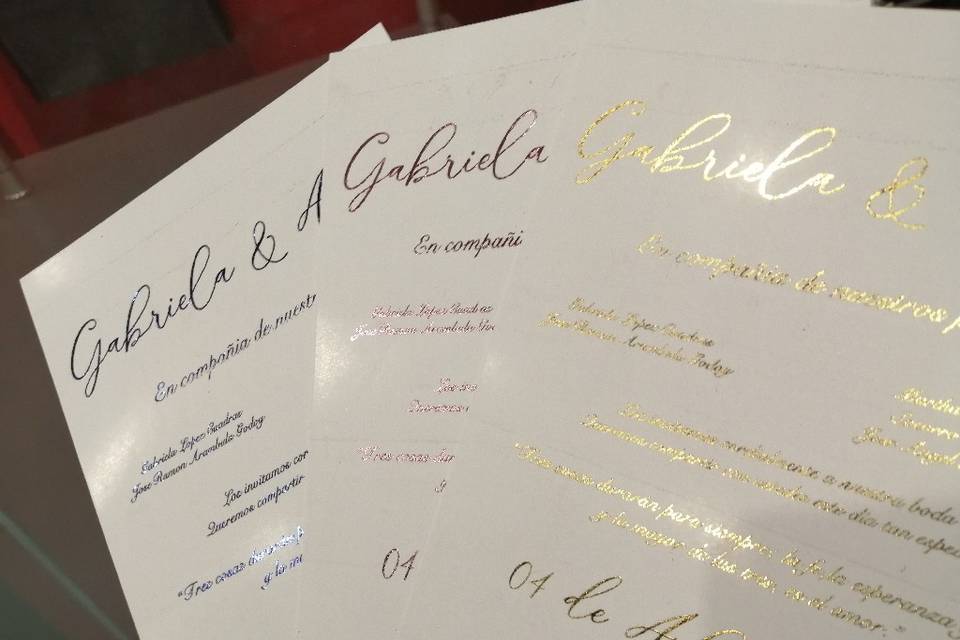 Gabriela & A
En compañia de nuestr
Gabriela López Cuadras
Jose Ramon Arambula Godoy
Los invitamos cor
Queremos compartir
"Tres cosas
y la m
Gabriela
En compañi
Gabriela López Cuadras
Jose Ramon Arambula
Los
Queremos
"Tres cosas dur
y
04
Gabriela &
En compañia de nuestros p
Gabriela López Cuadras
Jose Ramon Arambula Godoy
Los invitamos cordialmente a nuestra boda
Queremos compartir con ustedes este día tan espec
"Tres cosas durarán para siempre: la fe, la esperanza y
y la mayor de las tres, es el amor."
04 de A